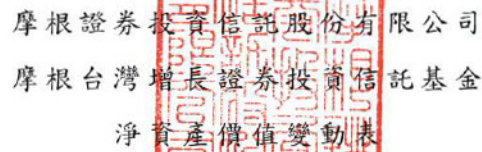 摩根證券投資信託股份有限公司
摩根台灣增長證券投資信託基金
淨資產價值變動表